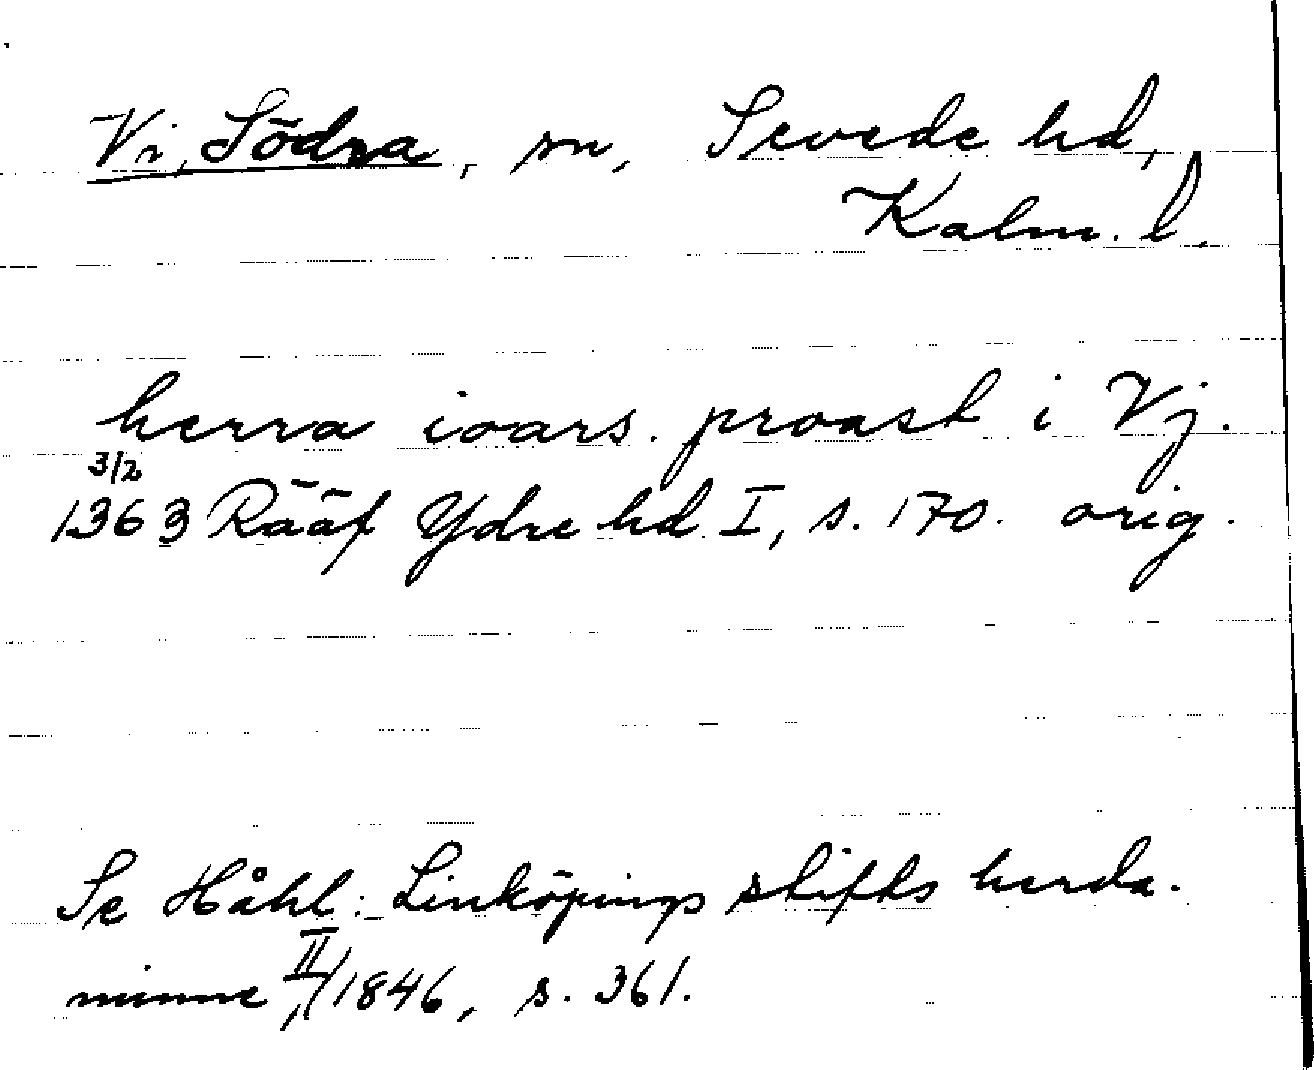 Vi, Södra, sn, Sevede hd,
Kalm. l.
herra ioars. proast i Vj.
3/2
1363 Rääf Ydre hd I, s. 170. orig.
Se Håhl: Linköpings stifts herda-
minne, II/1846, s. 361.